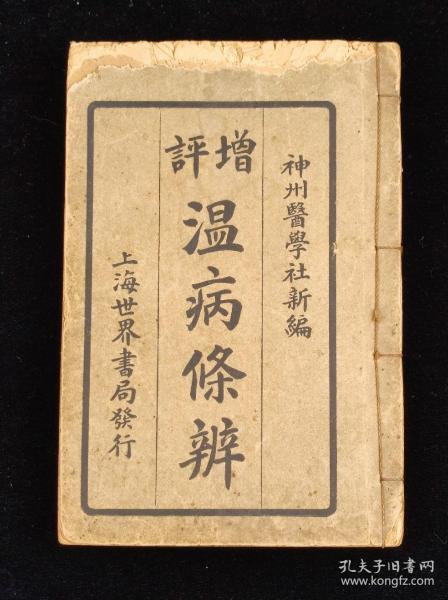 神州醫學社新編
增評
温病條辨
上海世界書局發行
孔夫子旧书网
www.kongfz.com